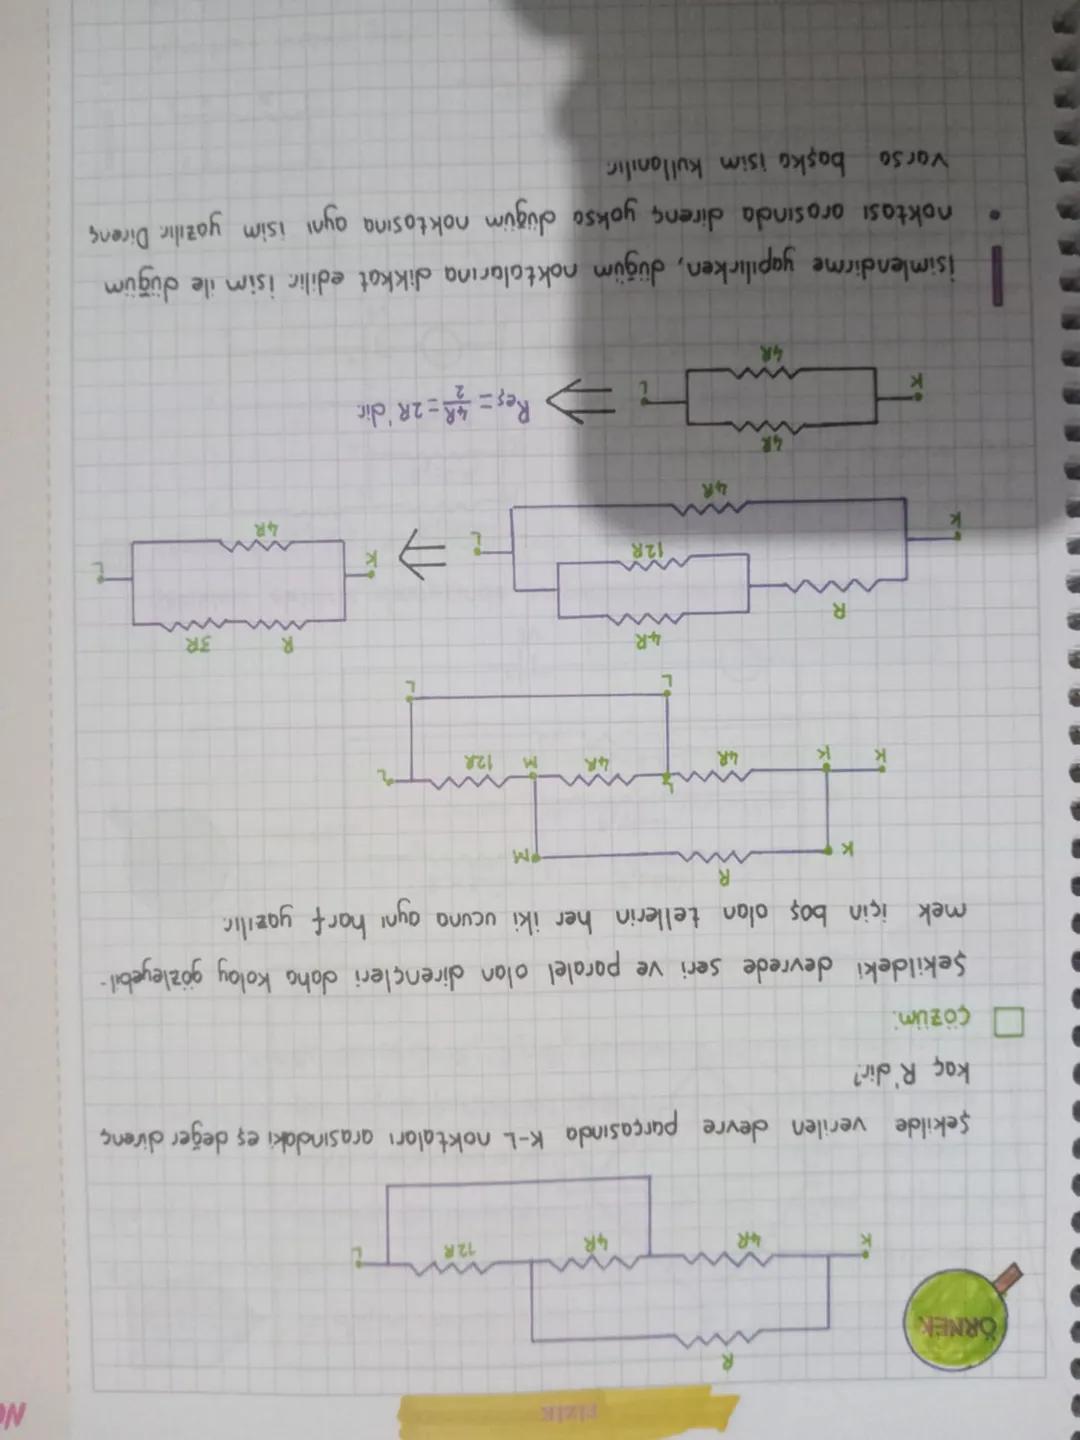 FİZİK
ÖRNEK
R
K
4R
4R
12R
L
Şekilde verilen devre parçasında K-L noktaları arasındaki eş değer direnç
kaç R'dir?
Çözüm:
Şekildeki devrede seri ve paralel olan dirençleri daha kolay gözleyebil-
mek için boş olan tellerin her iki ucuna aynı harf yazılır.
R
K
M
K
K
4R
L
4R
M
12R
L
L
L
R
4R
12R
K
L
4R
R
3R
K
L
4R
4R
K
L
4R
Reş = 4R/2 = 2R'dir.
İsimlendirme yapılırken, düğüm noktalarına dikkat edilir. İsim ile düğüm
noktası arasında direnç yoksa düğüm noktasına aynı isim yazılır. Direnç
varsa başka isim kullanılır.